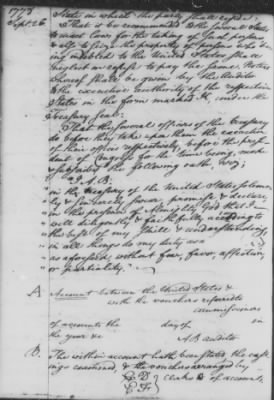 1778
Sept. 26
State in which the party shall reside:
That it be recommended to the several States
to enact laws for the taking of such persons
& also to seize the property of persons who being
indebted to the United States shall
neglect or refuse to pay the same, notice
whereof shall be given by the Auditor
to the executive authority of the respective
States in the form marked K, under the
Treasury seal:
That the several officers of the treasury
do before they take upon them the execution
of their offices respectively, before the presi-
dent of Congress for the time being, make
and subscribe the following oath, viz;
" I A.B.
in the treasury of the United States solemn-
" ly & sincerely swear, promise & declare,
" in the presence of Almighty God that I
" will diligently & faithfully according to
" the best of my skill & understanding,
" in all things do my duty as a
" as aforesaid without fear, favor, affection,
" or partiality."
A Account between the United States &
with the vouchers referred to
commissioners
of accounts the day of in
the year &c A B auditor
B. The within account hath been stated, the cast-
ings examined, & the vouchers arranged by
C.D } clerks of accounts,
E.F